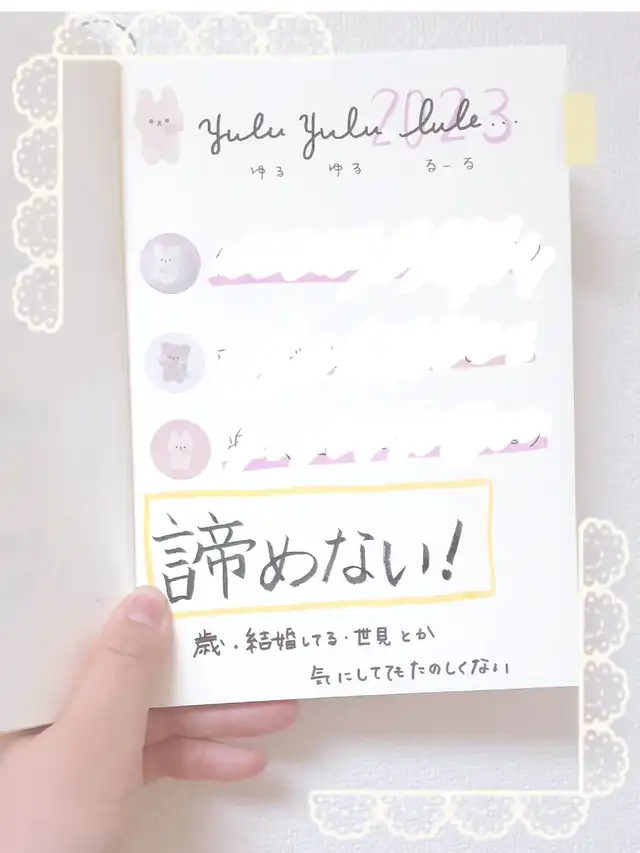 2023
yulu yulu lule...
ゆる ゆる るーる
諦めない!
歳・結婚してる・世見とか
気にしててもたのしくない